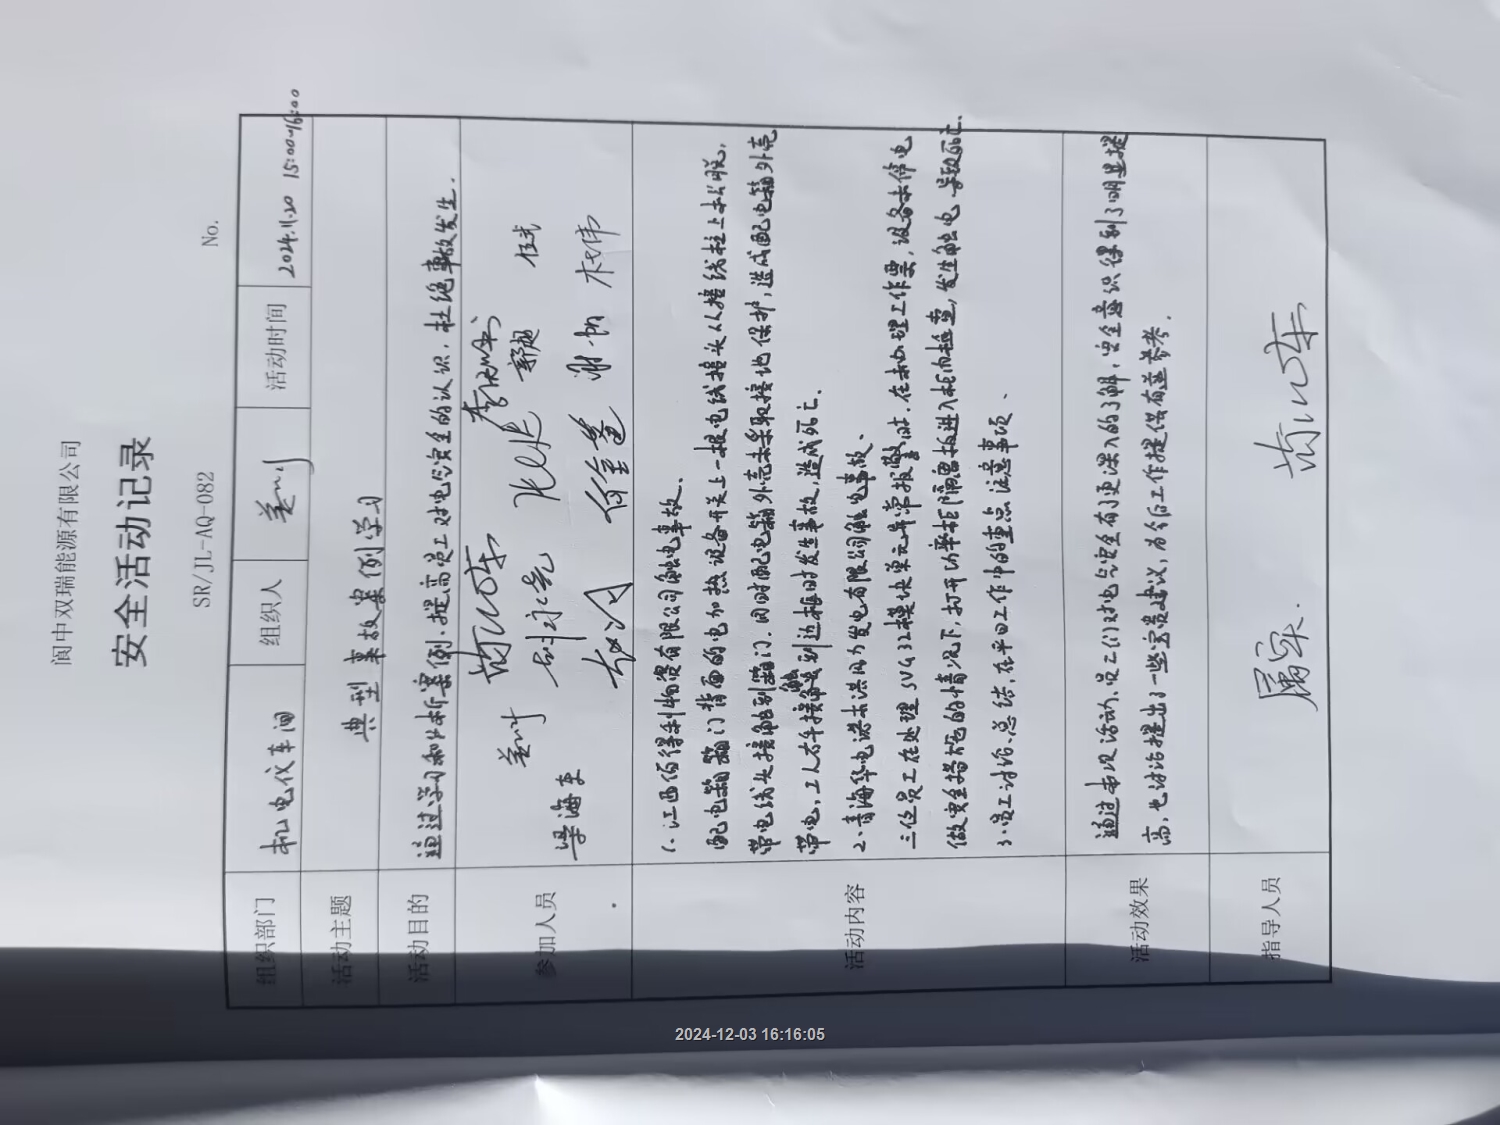 阆中双瑞能源有限公司
安全活动记录
SR/JL-AQ-082 No.
组织部门 机电仪车间 组织人 活动时间 2024.11.20 15:00-16:00
活动主题 典型事故案例学习
活动目的 通过学习和分析案例,提高员工对电气安全的认识,杜绝事故发生.
参加人员
郭超 任武
刘永亮 谢帆 杜伟
梁海东
活动内容
1. 江西佰得利物资有限公司触电事故.
配电箱箱门背面的电加热设备开关上一根电线接头从接线柱上松脱,
带电线头接触到箱门.同时配电箱外壳未采取接地保护,造成配电箱外壳
带电,工人右手接触到边框时发生事故,造成死亡.
2、青海华电诺木洪风力发电有限公司触电事故、
三位员工在处理SVG 32模块单元异常报警时.在未办理工作票,设备未停电
做安全措施的情况下,打开功率柜隔离挡板进入柜内检查,发生触电,导致死亡.
3、员工讨论、总结,在平日工作中的重点注意事项、
活动效果
通过本次活动,员工们对电气安全有了更深入的了解,安全意识得到了明显提
高,也讨论提出了一些宝贵建议,为今后工作提供有益参考.
指导人员
2024-12-03 16:16:05